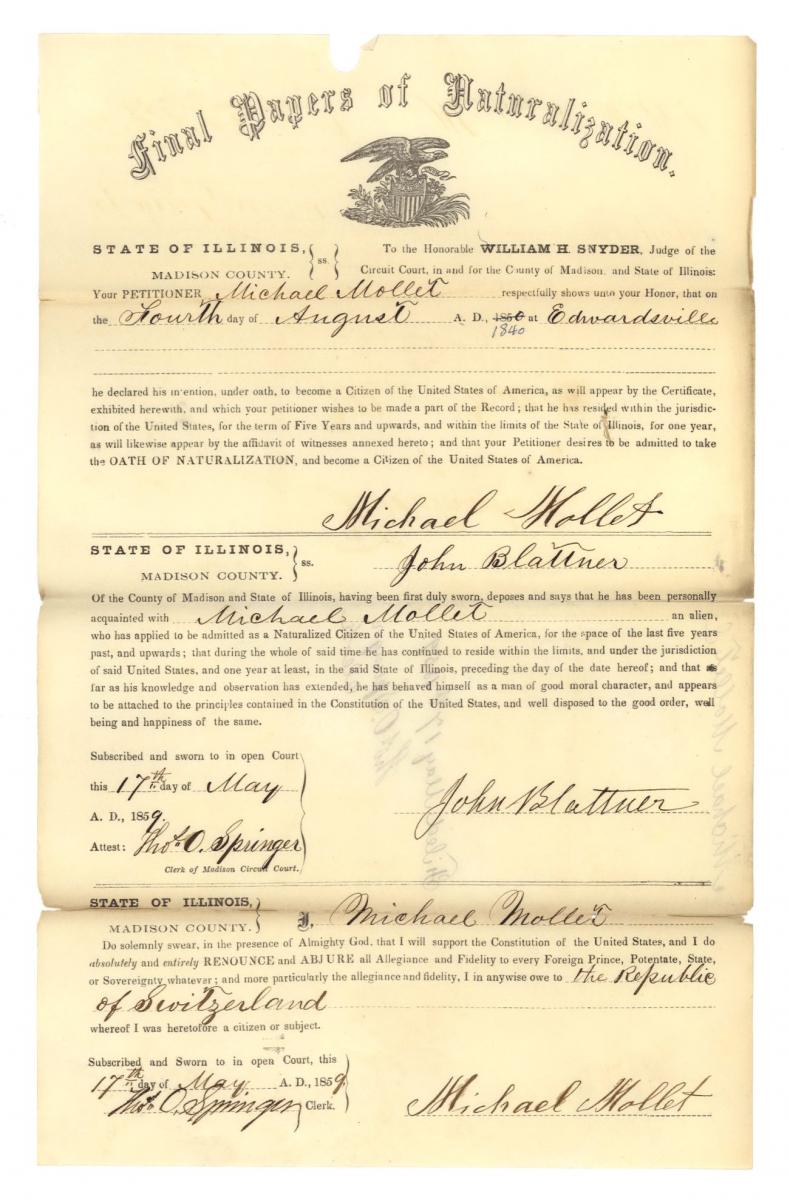 Final Papers of Naturalization.
STATE OF ILLINOIS, } ss. To the Honorable WILLIAM H. SNYDER, Judge of the
MADISON COUNTY. Circuit Court, in and for the County of Madison and State of Illinois:
Your PETITIONER Michael Mollet respectfully shows unto your Honor, that on
the Fourth day of August A. D., 185 at Edwardsville
1840
he declared his intention, under oath, to become a Citizen of the United States of America, as will appear by the Certificate,
exhibited herewith, and which your petitioner wishes to be made a part of the Record; that he has resided within the jurisdic-
tion of the United States, for the term of Five Years and upwards, and within the limits of the State of Illinois, for one year,
as will likewise appear by the affidavit of witnesses annexed hereto; and that your Petitioner desires to be admitted to take
the OATH OF NATURALIZATION, and become a Citizen of the United States of America.
Michael Mollet
STATE OF ILLINOIS, } ss. John Blattner
MADISON COUNTY.
Of the County of Madison and State of Illinois, having been first duly sworn, deposes and says that he has been personally
acquainted with Michael Mollet an alien,
who has applied to be admitted as a Naturalized Citizen of the United States of America, for the space of the last five years
past, and upwards; that during the whole of said time he has continued to reside within the limits, and under the jurisdiction
of said United States, and one year at least, in the said State of Illinois, preceding the day of the date hereof; and that as
far as his knowledge and observation has extended, he has behaved himself as a man of good moral character, and appears
to be attached to the principles contained in the Constitution of the United States, and well disposed to the good order, well
being and happiness of the same.
Subscribed and sworn to in open Court
this 17th day of May
John Blattner
A. D., 1859.
Attest: Thos. O. Springer
Clerk of Madison Circuit Court.
STATE OF ILLINOIS, }
MADISON COUNTY. I, Michael Mollet
Do solemnly swear, in the presence of Almighty God, that I will support the Constitution of the United States, and I do
absolutely and entirely RENOUNCE and ABJURE all Allegiance and Fidelity to every Foreign Prince, Potentate, State,
or Sovereignty whatever; and more particularly the allegiance and fidelity, I in anywise owe to the Republic
of Switzerland
whereof I was heretofore a citizen or subject.
Subscribed and Sworn to in open Court, this
17th day of May A. D., 1859
Thos. O. Springer Clerk. Michael Mollet